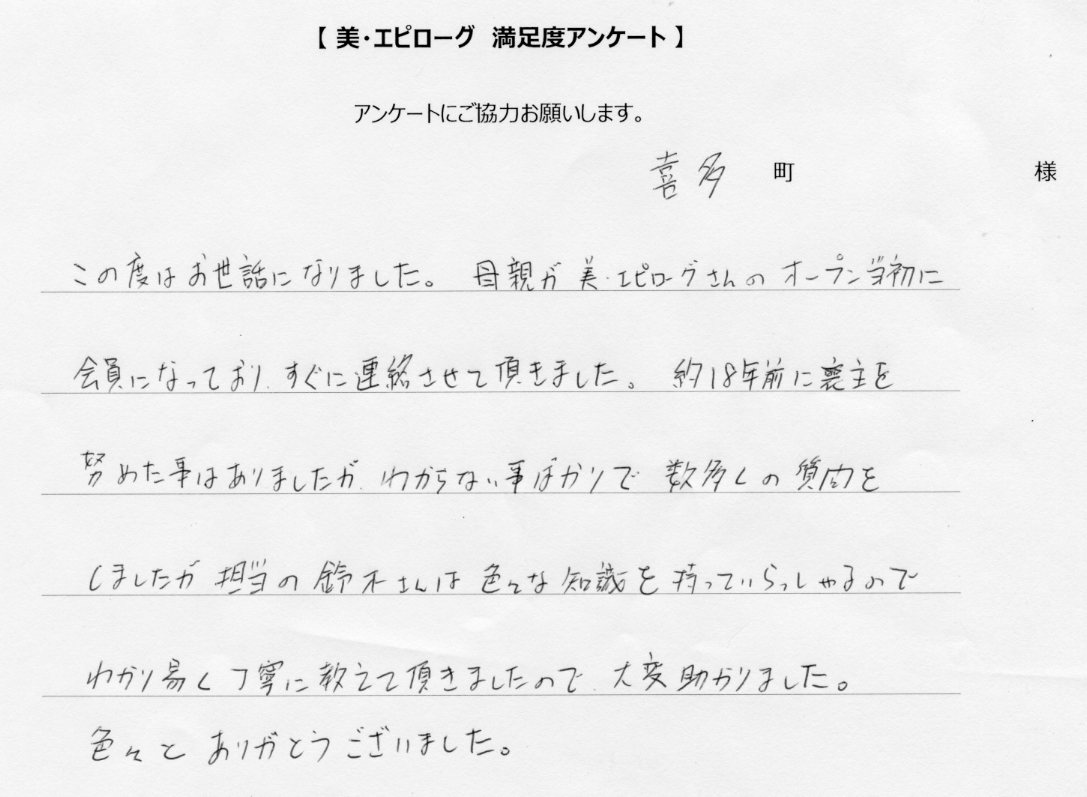 【 美・エピローグ 満足度アンケート 】
アンケートにご協力お願いします。
喜多 町 様
この度はお世話になりました。 母親が 美・エピローグさんの オープン当初に
会員になっており、すぐに連絡させて頂きました。 約18年前に喪主を
努めた事はありましたが、わからない事ばかりで 数多くの 質問を
しましたが 担当の 鈴木さんは 色々な 知識を 持っていらっしゃるので
わかり易く丁寧に教えて頂きましたので、大変助かりました。
色々と ありがとうございました。